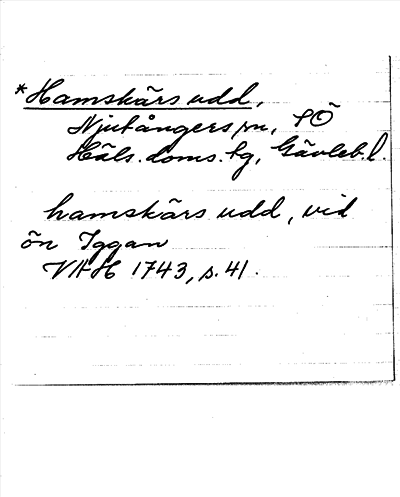 *Hamskärs udd,
Njutångers sn, SÖ
Häls. doms. tg, Gävleb. l.
hamskärs udd, vid
ön Iggan
VAH 1743, s. 41.